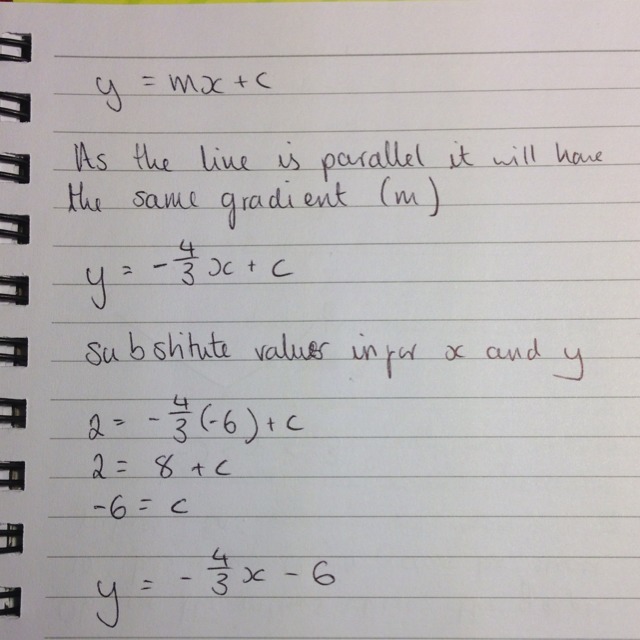 y = mx + c
As the line is parallel it will have
the same gradient (m)
y = -4/3 x + c
substitute values in for x and y
2 = -4/3 (-6) + c
2 = 8 + c
-6 = c
y = -4/3 x - 6